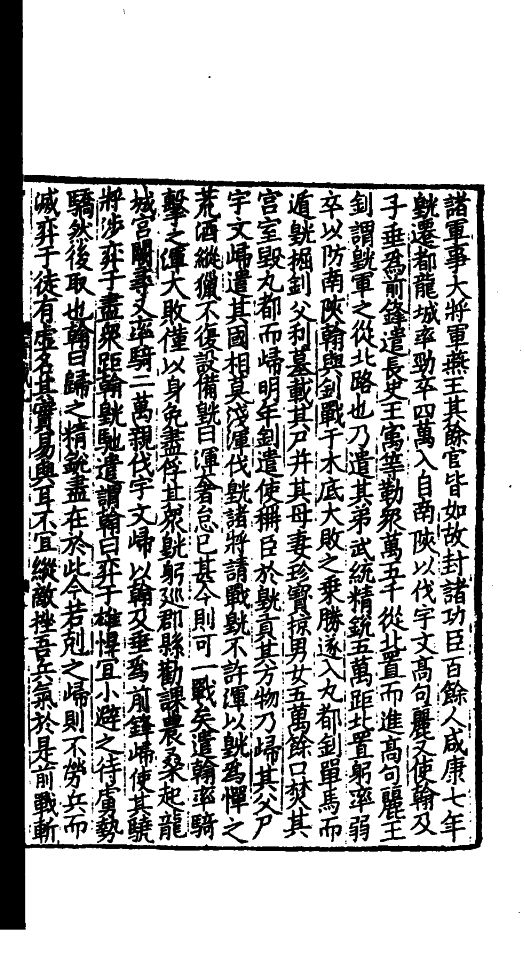 諸軍事大將軍燕王其餘官皆如故封諸功臣百餘人咸康七年
皝遷都龍城率勁卒四萬入自南陜以伐宇文高句麗又使翰及
子垂爲前鋒遣長史王㝢等勒衆萬五千從北置而進高句麗王
釗謂皝軍之從北路也乃遣其弟武統精銳五萬距北置躬率弱
卒以防南陜翰與釗戰于木底大敗之乘勝遂入丸都釗單馬而
遁皝掘釗父利墓載其尸并其母妻珍寳掠男女五萬餘口焚其
宫室毀丸都而歸明年釗遣使稱臣於皝貢其方物乃歸其父尸
宇文歸遣其國相莫淺渾伐皝諸將請戰皝不許渾以皝爲憚之
荒酒縱獵不復設備皝曰渾奢怠已甚今則可一戰矣遣翰率騎
擊之渾大敗僅以身免盡俘其衆皝躬廵郡縣勸課農桑起龍
城宫闕尋又率騎二萬親伐宇文歸以翰及垂爲前鋒歸使其驍
將涉弈于盡衆距翰皝馳遣謂翰曰弈于雄悍宜小避之待虜勢
驕然後取也翰曰歸之精銳盡在於此今若剋之歸則不勞兵而
滅弈于徒有虚名其實易與耳不宜縱敵挫吾兵氣於是前戰斬